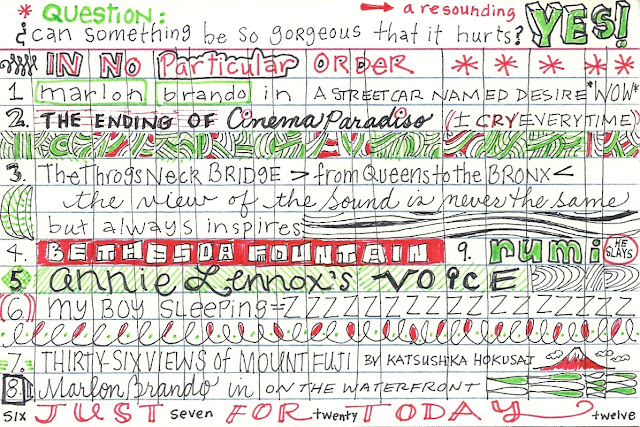 * QUESTION: → a resounding YES!
¿can something be so gorgeous that it hurts?
IN NO Particular ORDER * * * * *
1 marlon brando in A STREETCAR NAMED DESIRE *WOW*
2. THE ENDING OF Cinema Paradiso (I CRY EVERYTIME)
3. The Throgs Neck BRIDGE > from Queens to the BRONX <
the view of the Sound is never the same
but always inspires
4. BETHESDA FOUNTAIN 9. rumi HE SLAYS
5 annie Lennox's VOICE
(6) my BOY sleeping = ZZZZZZZZZZZZZ
7. THIRTY-SIX VIEWS of MOUNT FUJI BY KATSUSHIKA HOKUSAI
8 Marlon Brando in ON THE WATERFRONT
SIX JUST seven FOR twenty TODAY twelve